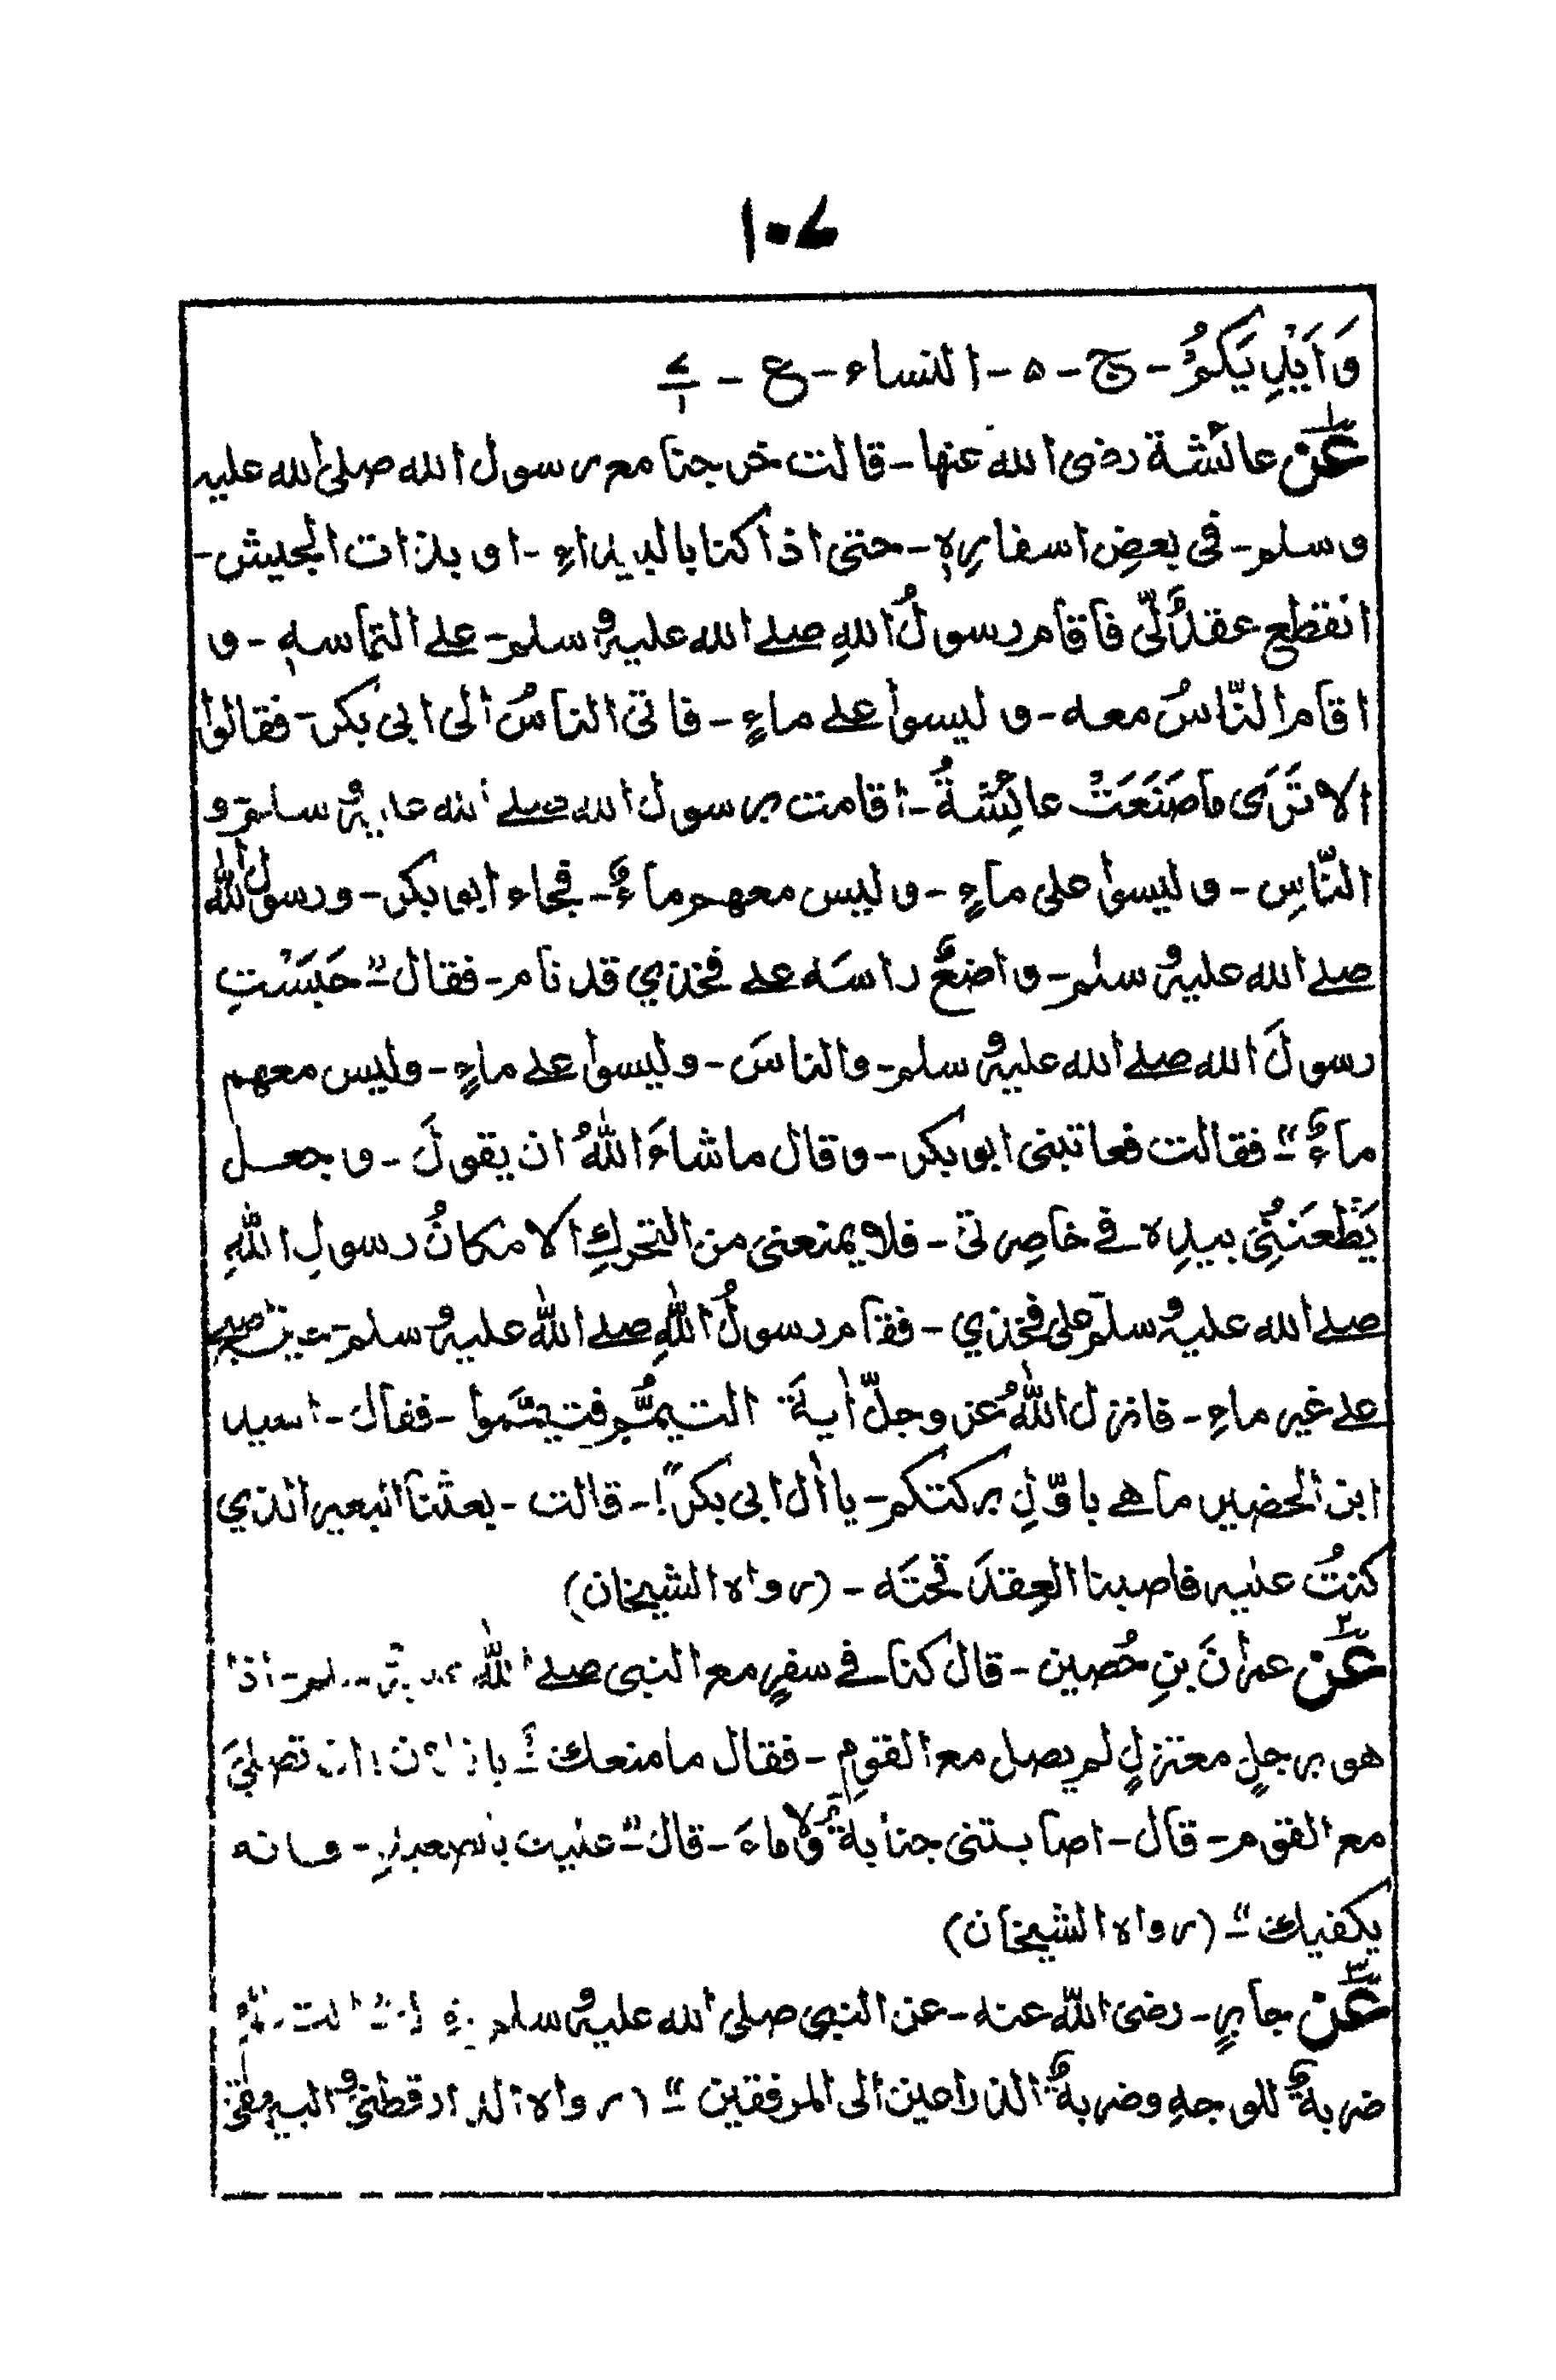 ۱۰۷
وَاَيْدِيَكُمْ - ج - ۵ - النساء - ع - ۷/۱
۱ عَنْ عائشة رضی الله عنها - قالت خرجنا مع رسول الله صلی الله علیه
وسلم - فی بعضِ اسفارِهٖ - حتی اذا کنا بالبیداءِ - او بذات الجیش -
انقطع عقدٌ لّی فاقام رسولُ اللهِ صلے الله علیہ وسلم - علے التماسهٖ - و
اقام النّاسُ معه - و لیسوا علے ماءٍ - فاتی الناسُ الی ابی بکر - فقالوا
الا تَرَی ما صَنَعَتْ عائِشةُ - اقامت برسول الله صلے الله علیہ وسلم و
النّاسِ - و لیسوا علی ماءٍ - و لیس معهم ماءٌ - فجاء ابوبکر - ورسول الله
صلے الله علیہ وسلم - واضعٌ راسَه علے فخذي قد نام - فقال "حَبَسْتِ
رسولَ الله صلے الله علیہ وسلم - والناسَ - ولیسوا علے ماءٍ - ولیس معهم
ماءٌ" فقالت فعاتبنی ابوبکر - وقال ماشاءَ اللهُ ان یقولَ - وجعل
یَطْعَنُنِی بیدِہ فے خاصِرتی - فلا یمنعنی من التحركِ الا مكانُ رسولِ اللهِ
صلے الله علیہ وسلم علی فخذي - فقام رسولُ اللهِ صلے الله علیہ وسلم حین اصبح
علے غیر ماءٍ - فانزل اللهُ عز وجلّ اٰیةَ التیمُّم فتیمَّموا - فقال - اسید
ابن الحضیر ماهے باوّلِ برکتکم - یا اٰل ابی بکر"! - قالت - بعثنا البعیر الذي
کنتُ علیه فاصبنا العِقدَ تحتَه - (رواه الشیخان)
۲ عَنْ عمرانَ بنِ حُصین - قال کنا فے سفرٍ مع النبی صلے الله وسلم - اذا
هو برجلٍ معتزلٍ لم یصل مع القومِ - فقال ما منعك یا فلان! ان تصلیَ
مع القوم - قال - اصابتنی جنابةٌ ولا ماءَ - قال "علیك بالصعیدِ - فانه
یکفیك" - (رواه الشیخان)
۳ عَنْ جابرٍ - رضی الله عنه - عن النبی صلی الله علیہ وسلم قال
ضربةٌ للوجهِ وضربةٌ الذراعین الی المرفقین" (رواه الدارقطنی والبیهقی